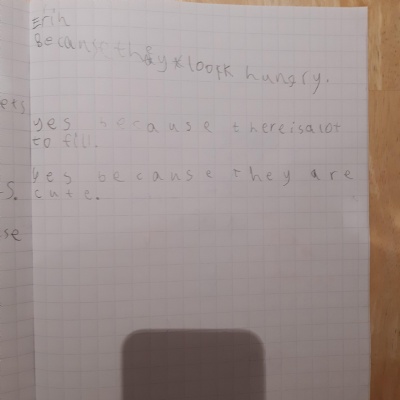 Erin
Because they look hungry.
ets
yes because thereisalot
to fill.
yes because they are
s. cute.
se